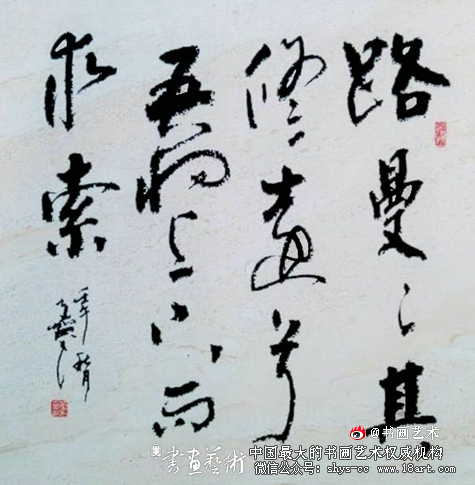 路曼々其
修遠兮
吾将上下而
求索
@书画艺术
書畫藝術
中国最大的书画艺术权威机构
微信公众号：shys-cc www.18art.com